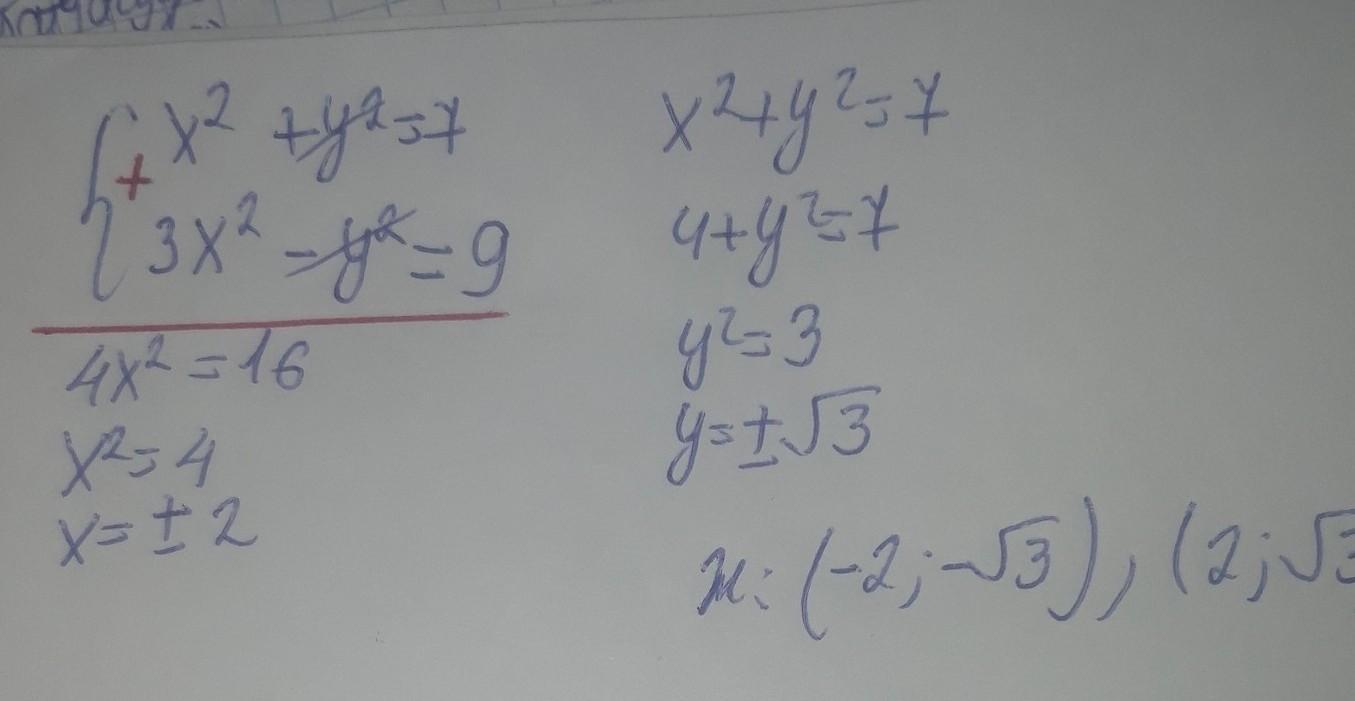 x² + y² = 7
+
3x² - y² = 9
4x² = 16
x² = 4
x = ± 2
x² + y² = 7
4 + y² = 7
y² = 3
y = ± √3
ж: (-2; -√3), (2; √3